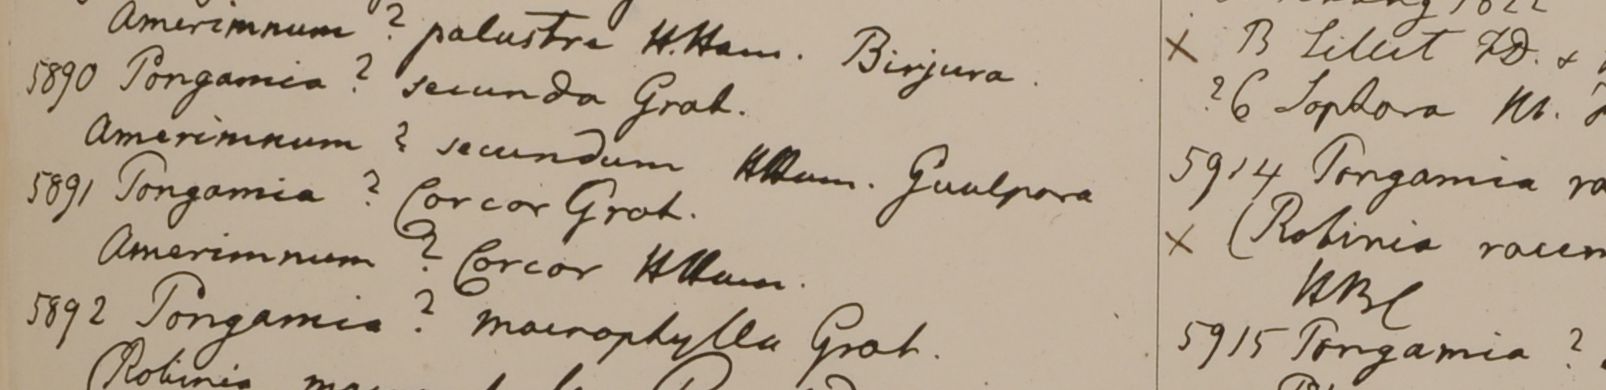 Amerimnum ? palustre H.Ham. Birjura.
5890 Pongamia ? secunda Grah.
Amerimnum ? secundum HHam. Gualpara
5891 Pongamia ? Corcor Grah.
Amerimnum ? Corcor HHam.
5892 Pongamia ? macrophylla Grah.
(Robinia
1822
× B Sillet FD. &
?6 Sophora Hb.
5914 Pongamia ra
× (Robinia racem
HBC
5915 Pongamia ?